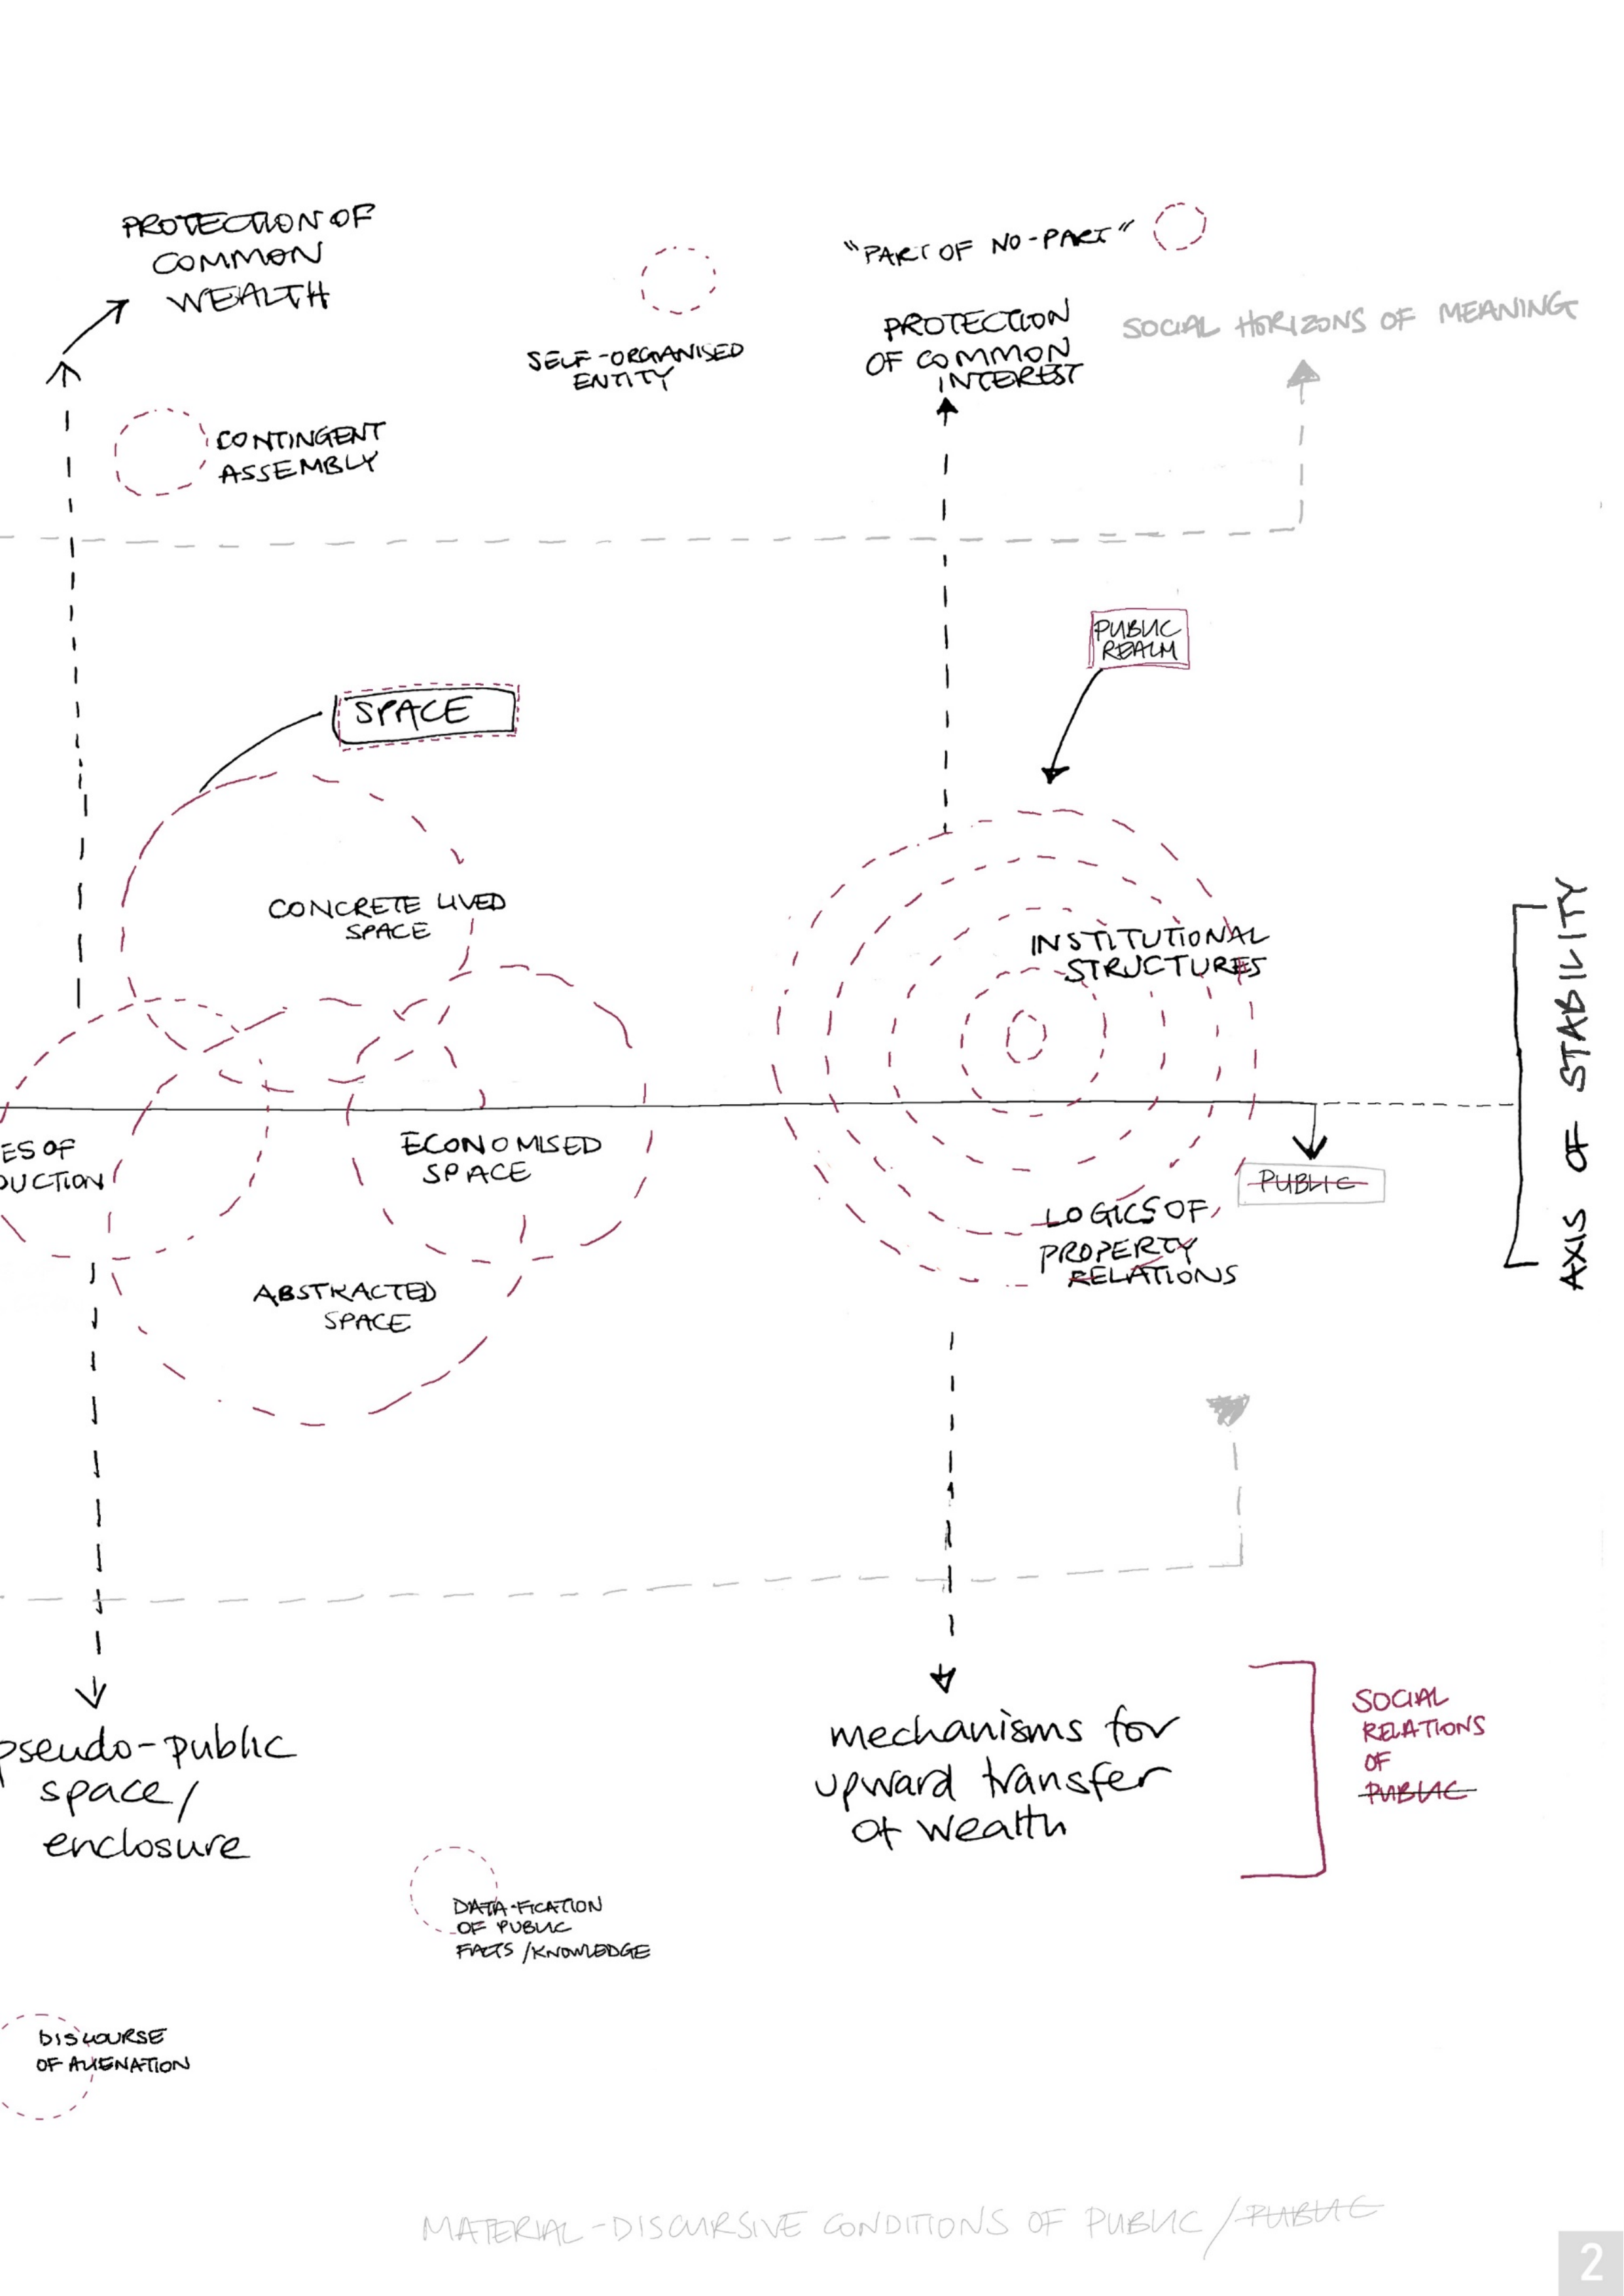 PROTECTION OF
COMMON
WEALTH
"PART OF NO-PART"
SELF-ORGANISED
ENTITY
PROTECTION
OF COMMON
INTEREST
SOCIAL HORIZONS OF MEANING
CONTINGENT
ASSEMBLY
PUBLIC
REALM
SPACE
CONCRETE LIVED
SPACE
INSTITUTIONAL
STRUCTURES
AXIS OF STABILITY
ES OF
DUCTION
ECONOMISED
SPACE
PUBLIC
LOGICS OF
PROPERTY
RELATIONS
ABSTRACTED
SPACE
pseudo-public
space/
enclosure
mechanisms for
upward transfer
of wealth
SOCIAL
RELATIONS
OF
PUBLIC
DATA-FICATION
OF PUBLIC
FACTS/KNOWLEDGE
DISCOURSE
OF ALIENATION
MATERIAL-DISCURSIVE CONDITIONS OF PUBLIC/PUBLIC
2